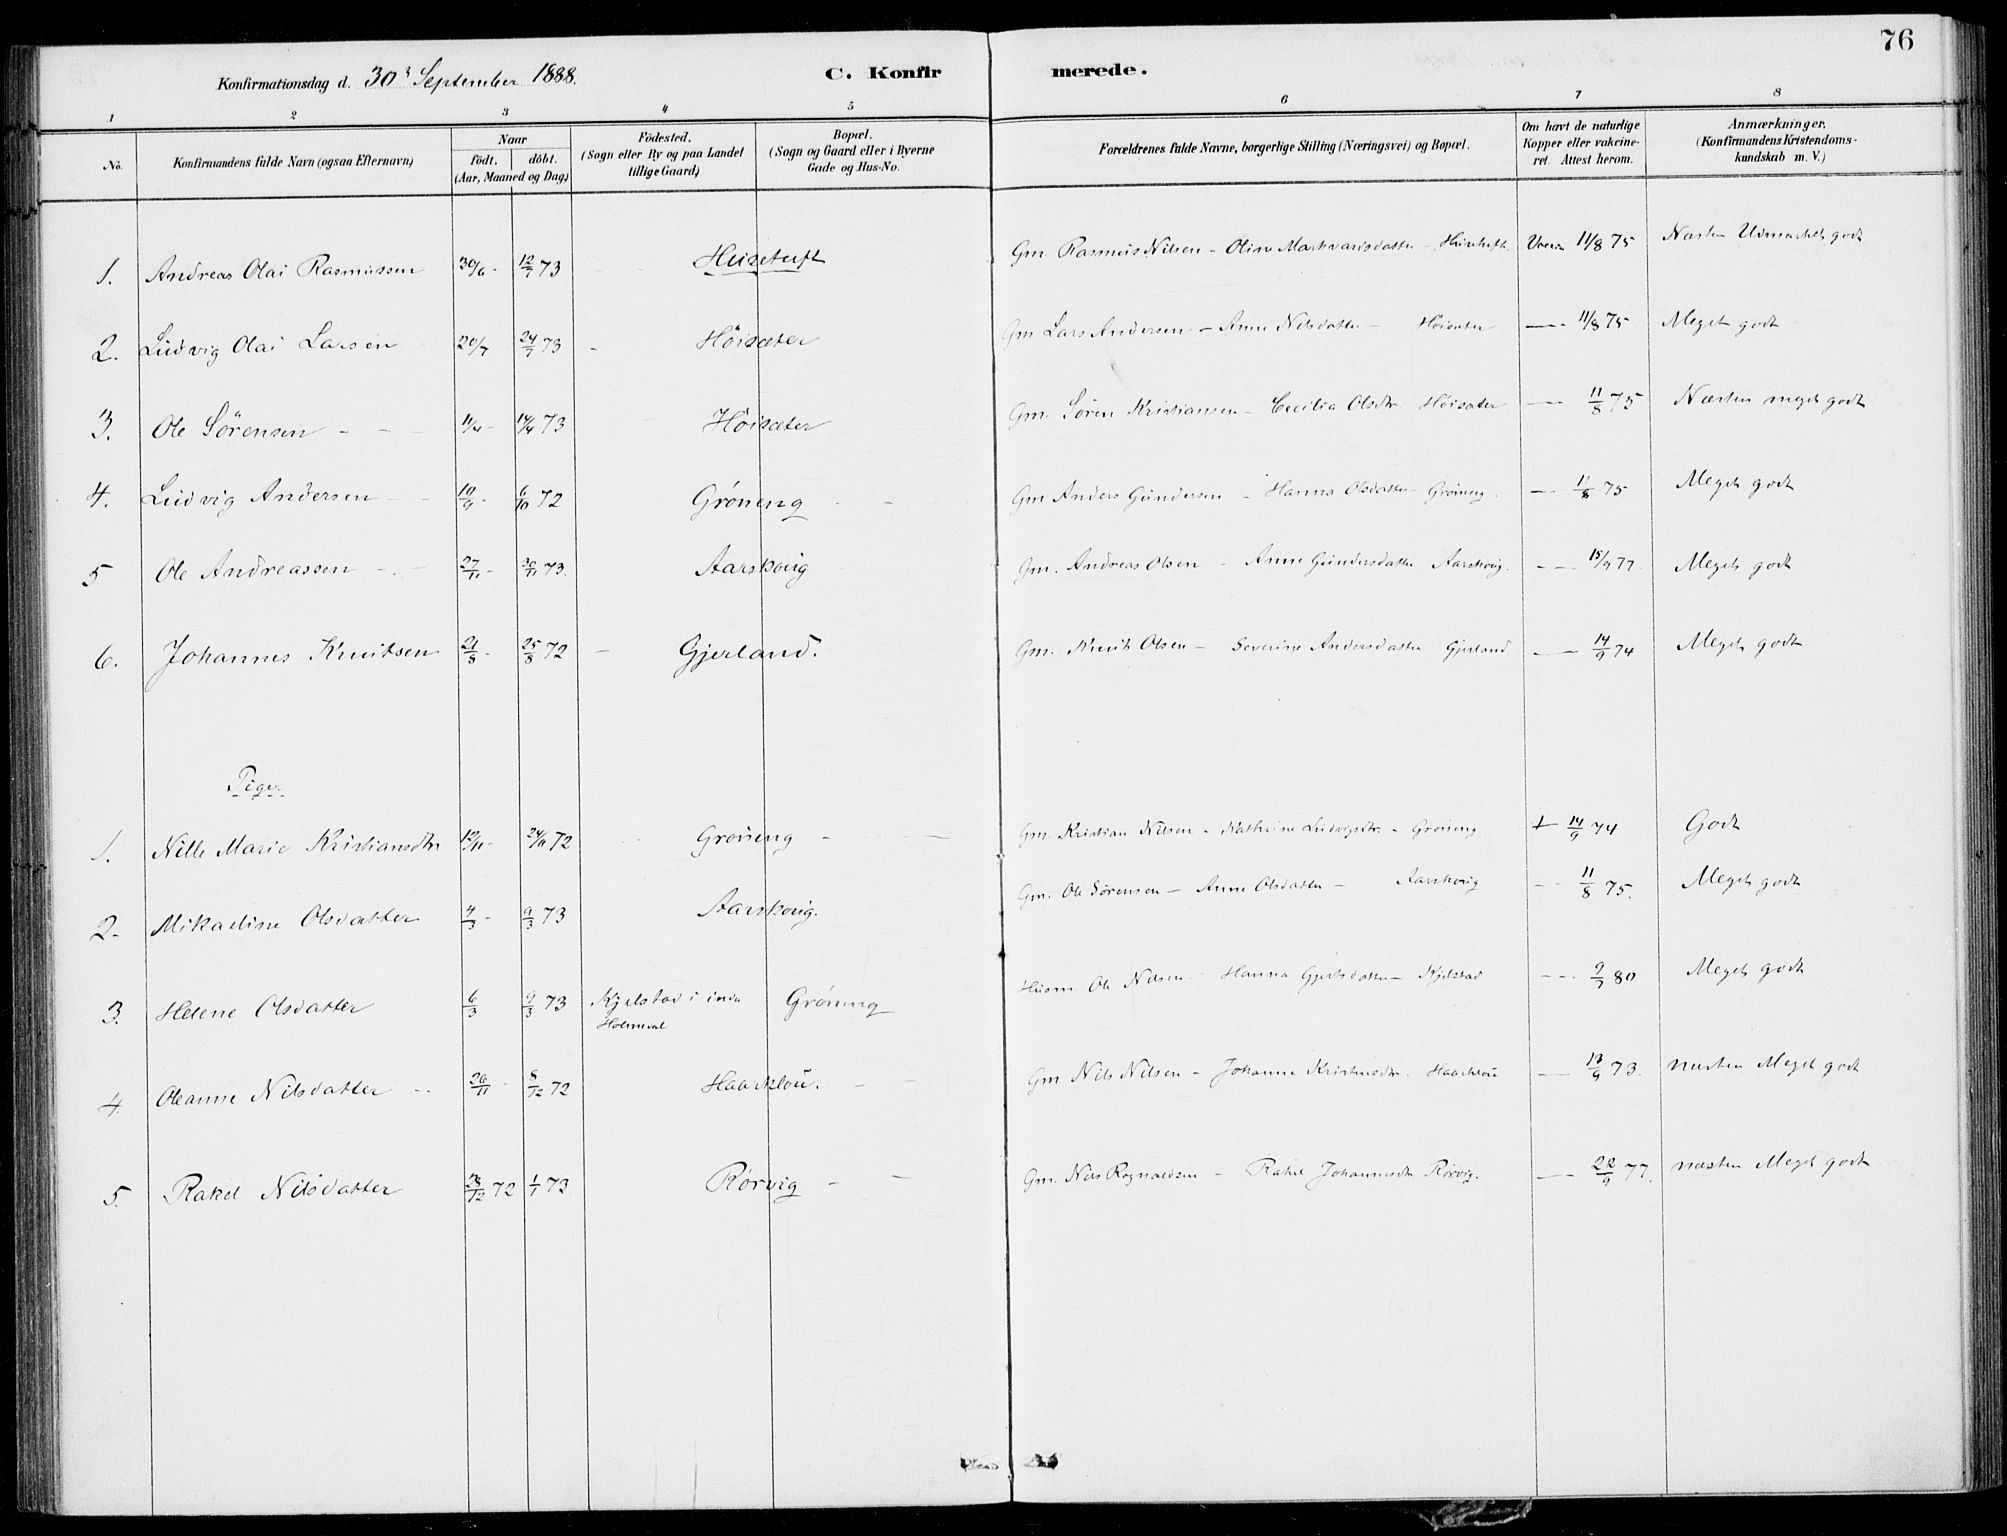 76
Konfirmationsdag d. 30 September 1888. C. Konfirmerede.
1 2 3 4 5 6 7 8
No. Konfirmandens fulde Navn (ogsaa Efternavn) Naar født. døbt. (Aar, Maaned og Dag) Fødested. (Sogn eller By og paa Landet tillige Gaard) Bopæl. (Sogn og Gaard eller i Byerne Gade og Hus-No. Forældrenes fulde Navne, borgerlige Stilling (Næringsvei) og Bopæl. Om havt de naturlige Kopper eller vakcineret. Attest herom. Anmærkninger, (Konfirmandens Kristendomskundskab m. V.)
1. Andreas Olai Rasmussen 30/6 - 12/7 73 Husetuft Gm. Rasmus Nilsen - Oline Markvardsdatter - Husetuft 11/8 75 Næsten Udmærket godt
2. Ludvig Olai Larsen 20/7 24/7 73 - Høisæter Gm Lars Andersen - Anne Nilsdatter - Høisæter — 11/8 75 Meget godt
3. Ole Sørensen - - - 14/4 73 Høisæter Gm. Søren Kristiansen - Cecilia Olsdtr. Høisæter — 11/8 75 Næsten meget godt
4. Ludvig Andersen - - 10/9 - 6/10 72 Grøneng - - Gm Anders Gundersen - Hanna Olsdatter - Grøneng. — 11/8 75 Meget godt
5 Ole Andreassen - - 27/11 - 30/11 73. Aarskoug Gm. Andreas Olsen - Anne Gundersdatter Aarskoug. — 15/9 77. Meget godt
6. Johannes Knutsen 21/8 - 25/8 72 - Gjerland. Gm. Knut Olsen - Severine Andersdatter Gjerland — 14/9 74 Meget godt
Piger
1. Nille Marie Kristiansdtr 12/11 - 24/11 72 Grøneng - - Gm. Kristian Nilsen - Kathrine Ludvigsdtr. - Grøneng 14/9 74 Godt
2. Mikaeline Olsdatter 4/3 - 9/3 73 Aarskoug. Gm. Ole Sørensen - Anne Olsdatter - Aarskoug — 11/8 75. Meget godt
3. Helene Olsdatter 6/3 9/3 73 Kjelstad i indre Holmedal Grøneng Husm. Ole Nilsen Hanna Gjertsdatter - Kjelstad — 9/7 80 Meget godt
4 Oleanne Nilsdatter - 26/11 - 8/12 72 Haarklou. - Gm Nils Nilsen - Johanne Kristensdtr. Haarklou — 13/9 73. næsten Meget godt
5. Rakel Nilsdatter 28/12 72 1/1 73 Rørvig - - Gm. Nils Rognaldsen - Rakel Johannesdtr Rørvig. — 22/9 77. næsten Meget godt